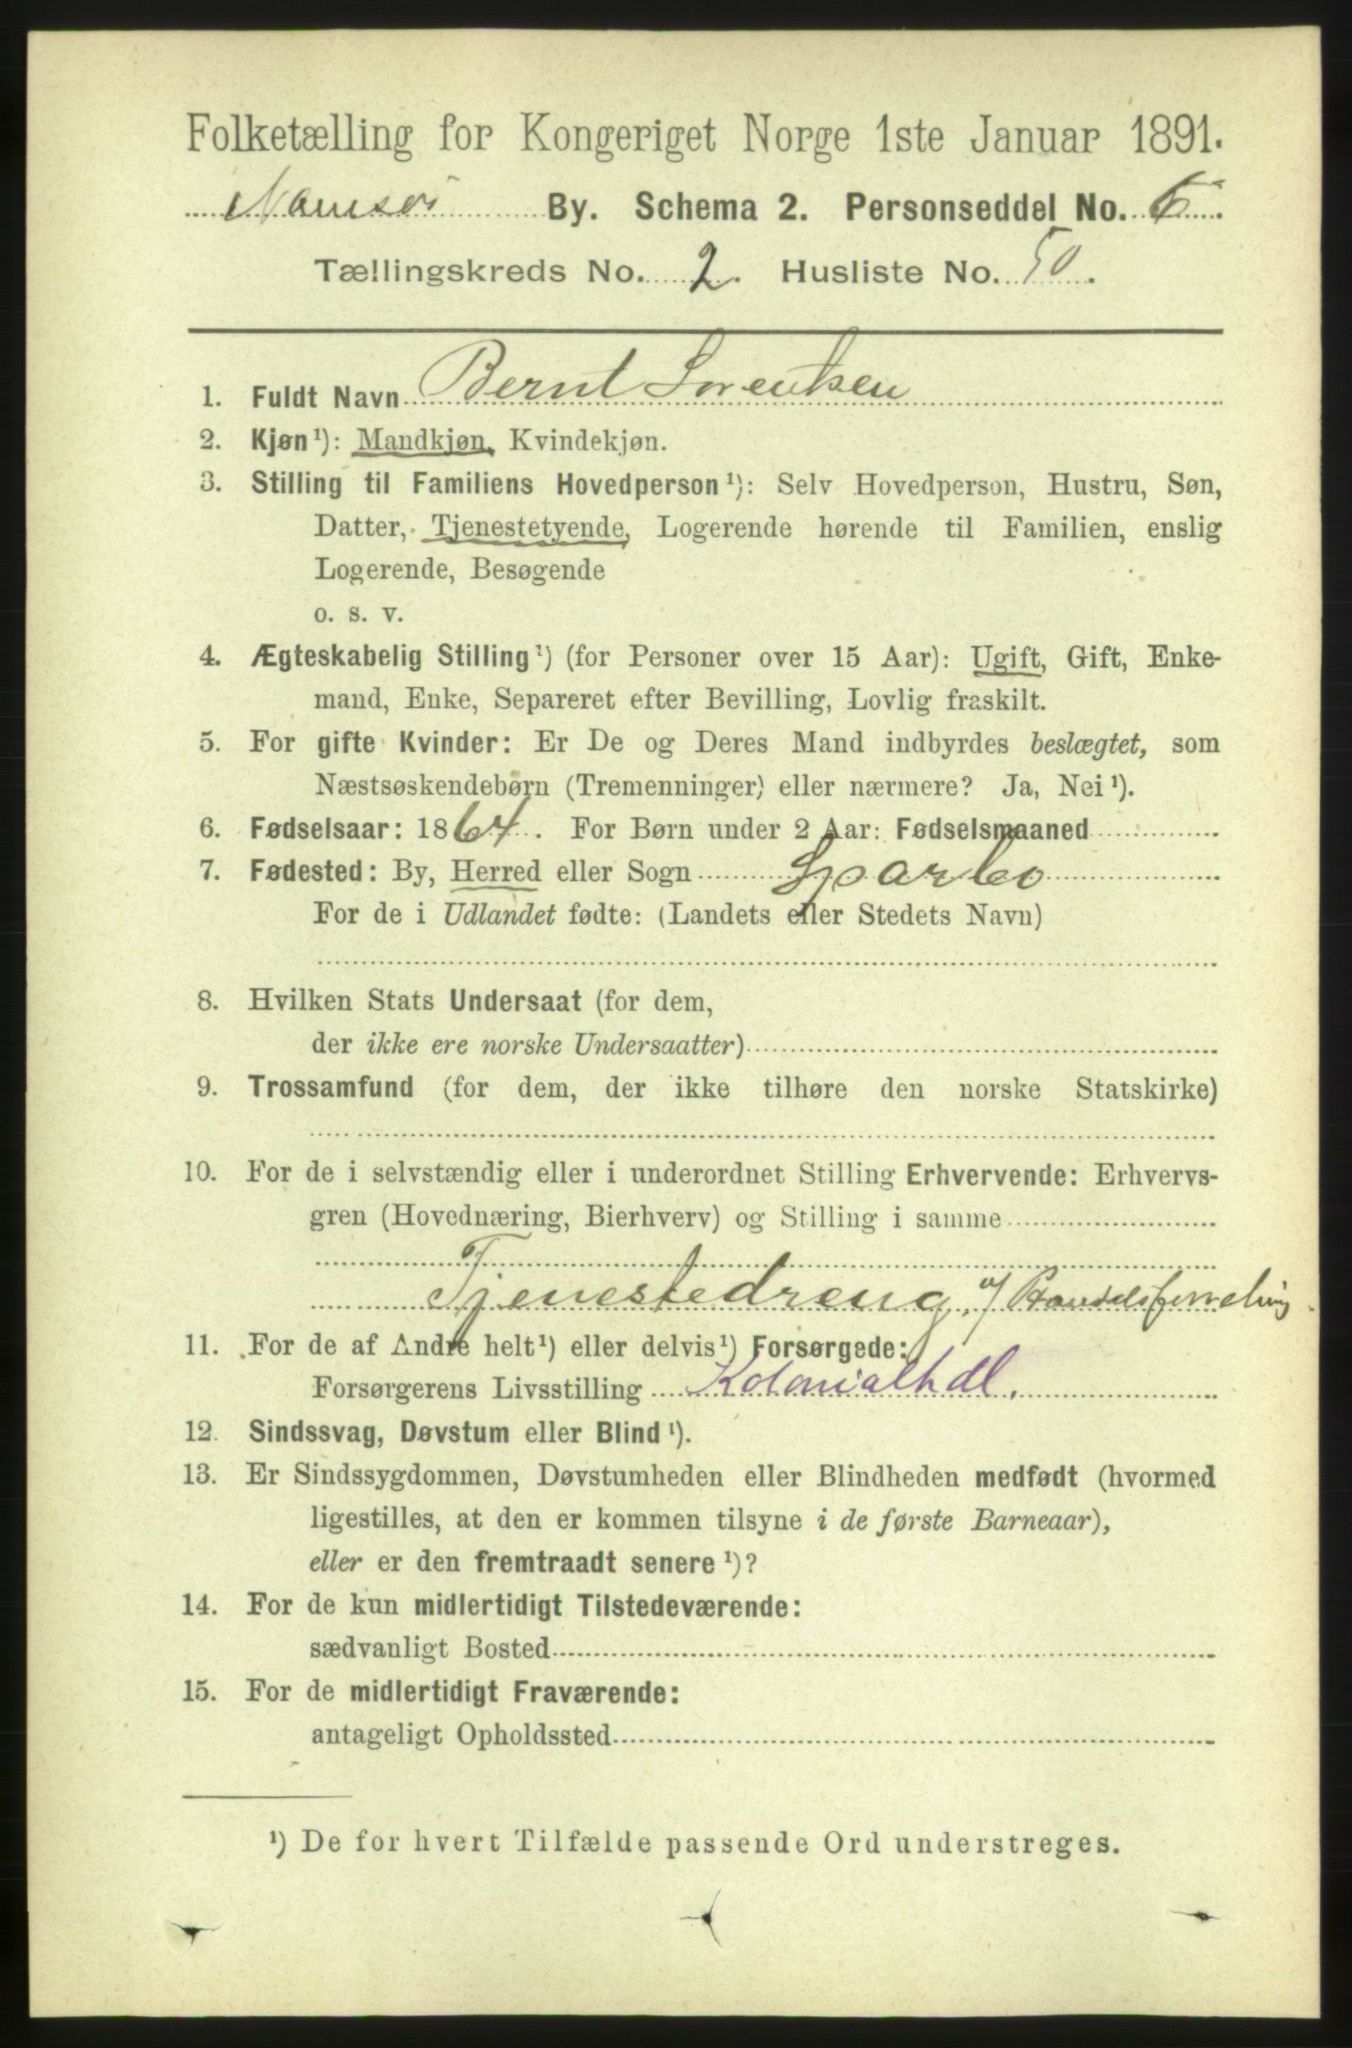 Folketælling for Kongeriget Norge 1ste Januar 1891.
Namsos By. Schema 2. Personseddel No. 6.
Tællingskreds No. 2. Husliste No. 50.
1. Fuldt Navn Bernt Lorentsen
2. Kjøn¹): Mandkjøn, Kvindekjøn.
3. Stilling til Familiens Hovedperson¹): Selv Hovedperson, Hustru, Søn,
Datter, Tjenestetyende, Logerende hørende til Familien, enslig
Logerende, Besøgende
o. s. v.
4. Ægteskabelig Stilling¹) (for Personer over 15 Aar): Ugift, Gift, Enke-
mand, Enke, Separeret efter Bevilling, Lovlig fraskilt.
5. For gifte Kvinder: Er De og Deres Mand indbyrdes beslægtet, som
Næstsøskendebørn (Tremenninger) eller nærmere? Ja, Nei¹).
6. Fødselsaar: 1864. For Børn under 2 Aar: Fødselsmaaned
7. Fødested: By, Herred eller Sogn Sparbo
For de i Udlandet fødte: (Landets eller Stedets Navn)
8. Hvilken Stats Undersaat (for dem,
der ikke ere norske Undersaatter)
9. Trossamfund (for dem, der ikke tilhøre den norske Statskirke)
10. For de i selvstændig eller i underordnet Stilling Erhvervende: Erhvervs-
gren (Hovednæring, Bierhverv) og Stilling i samme
Tjenestedreng, v/ Handelsforretning
11. For de af Andre helt¹) eller delvis¹) Forsørgede:
Forsørgerens Livsstilling Kolonialhdl.
12. Sindssvag, Døvstum eller Blind¹).
13. Er Sindssygdommen, Døvstumheden eller Blindheden medfødt (hvormed
ligestilles, at den er kommen tilsyne i de første Barneaar),
eller er den fremtraadt senere¹)?
14. For de kun midlertidigt Tilstedeværende:
sædvanligt Bosted
15. For de midlertidigt Fraværende:
antageligt Opholdssted
¹) De for hvert Tilfælde passende Ord understreges.